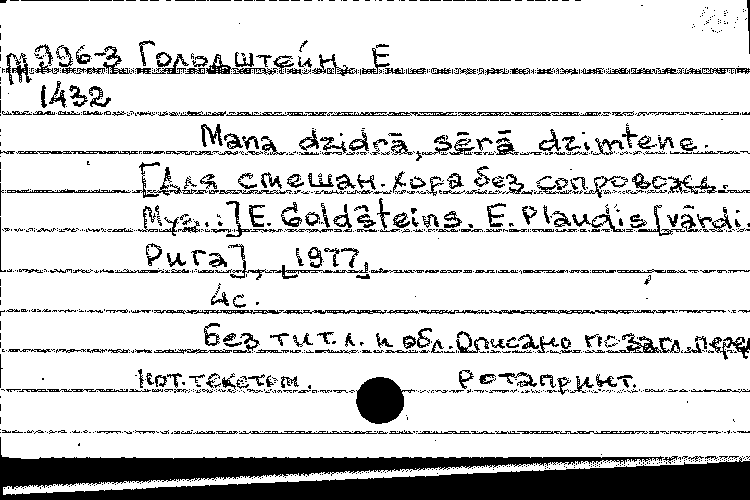 М 996-3 Гольдштейн, Е
1432
Mana dzidrā, sērā dzimtene.
[Для смешан. хора без сопровожд.
Муз.:] E. Goldšteins. E. Plaudis [vārdi.
Рига], [1977].
4с.
Без тит. л. и обл. Описано по загл. перед
нот. текстом. Ротапринт.